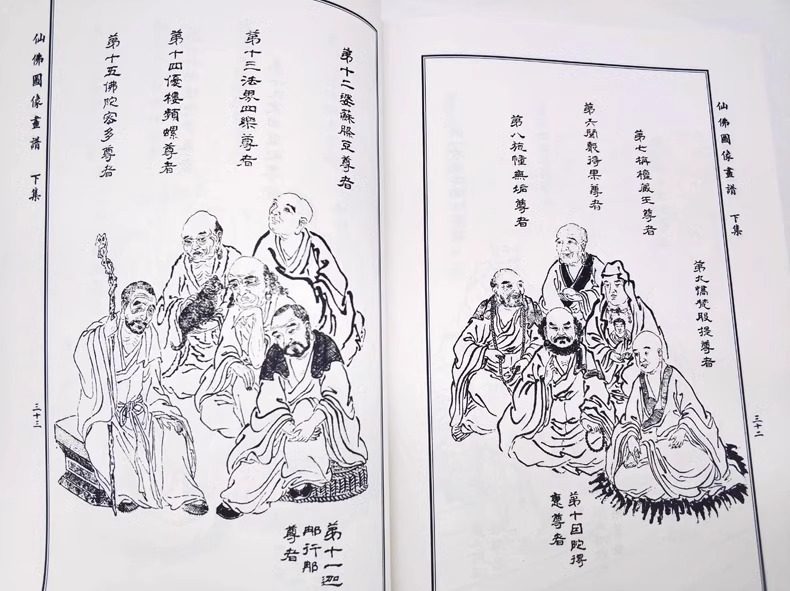 仙佛圖像畫譜 下集
三十二
第九憍梵般提尊者
第七栴檀藏王尊者
第六聞聲得果尊者
第八施幢無垢尊者
第十因陀得
惠尊者
第十二婆蘇槃豆尊者
第十三法界四樂尊者
第十四優樓頻螺尊者
第十五佛陀密多尊者
第十一迦
那行那
尊者
仙佛圖像畫譜 下集
三十三